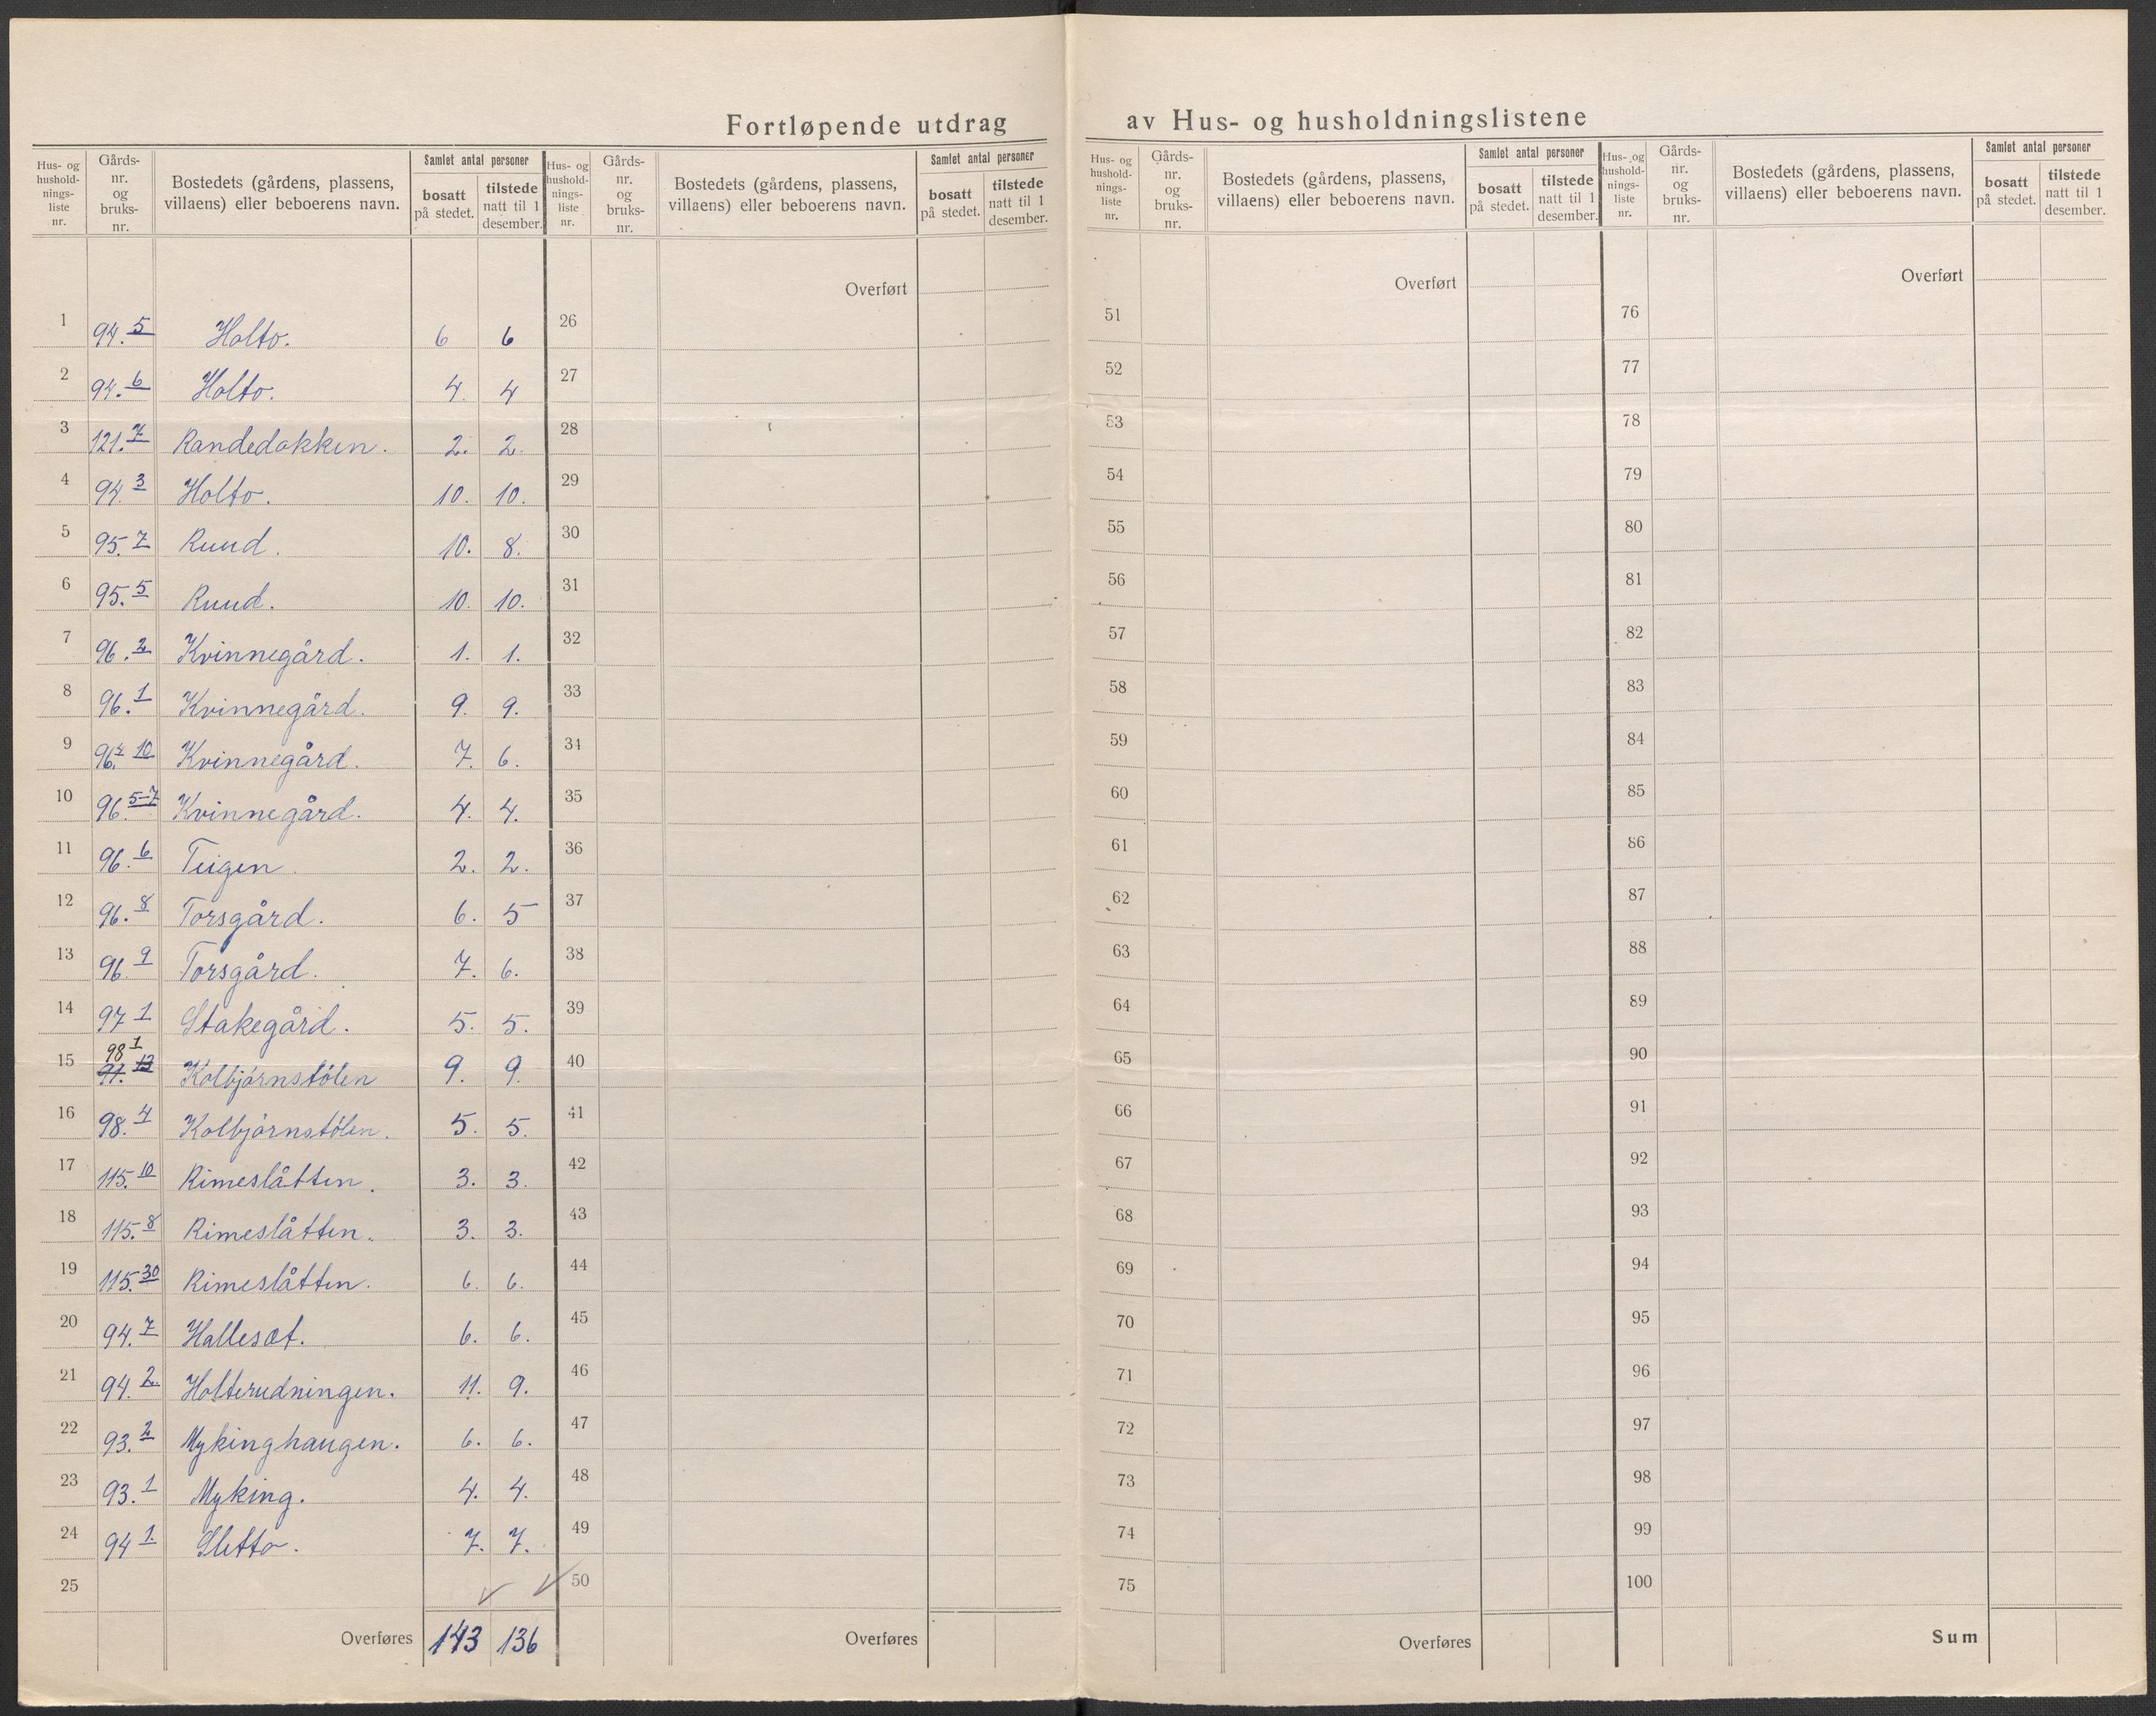 Fortløpende utdrag av Hus- og husholdningslistene
Hus- og hushold-nings-liste nr.
Gårds-nr. og bruks-nr.
Bostedets (gårdens, plassens, villaens) eller beboerens navn.
Samlet antal personer
bosatt på stedet.
tilstede natt til 1 desember.
1 94.5 Holto. 6 6
2 94.6 Holto. 4. 4
3 121.7 Randedokken. 2. 2.
4 94.3 Holto. 10. 10.
5 95.7 Ruud. 10. 8.
6 95.5 Ruud. 10. 10.
7 96.2 Kvinnegård. 1. 1.
8 96.1 Kvinnegård. 9. 9.
9 96. 10 Kvinnegård. 7. 6.
10 96.5-7 Kvinnegård. 4. 4.
11 96.6 Teigen. 2. 2.
12 96.8 Torsgård. 6. 5
13 96.9 Torsgård. 7. 6.
14 97 1 Stakegård. 5. 5.
15 98 1 Kolbjørnstølen 9. 9.
16 98.4 Kolbjørnstølen. 5. 5.
17 115.10 Rimeslåtten. 3. 3.
18 115.8 Rimeslåtten. 3. 3.
19 115.30 Rimeslåtten. 6. 6.
20 94.7 Hallesæt. 6. 6.
21 94.2. Holterudningen. 11. 9.
22 93.2 Mykinghaugen. 6. 6.
23 93.1 Myking. 4. 4.
24 94 1. Sletto. 7. 7.
25
Overføres 143 136
Hus- og hushold-nings-liste nr.
Gårds-nr. og bruks-nr.
Bostedets (gårdens, plassens, villaens) eller beboerens navn.
Samlet antal personer
bosatt på stedet.
tilstede natt til 1 desember.
Overført
26
27
28
29
30
31
32
33
34
35
36
37
38
39
40
41
42
43
44
45
46
47
48
49
50
Overføres
Hus- og hushold-nings-liste nr.
Gårds-nr. og bruks-nr.
Bostedets (gårdens, plassens, villaens) eller beboerens navn.
Samlet antal personer
bosatt på stedet.
tilstede natt til 1 desember.
Overført
51
52
53
54
55
56
57
58
59
60
61
62
63
64
65
66
67
68
69
70
71
72
73
74
75
Overføres
Hus- og hushold-nings-liste nr.
Gårds-nr. og bruks-nr.
Bostedets (gårdens, plassens, villaens) eller beboerens navn.
Samlet antal personer
bosatt på stedet.
tilstede natt til 1 desember.
Overført
76
77
78
79
80
81
82
83
84
85
86
87
88
89
90
91
92
93
94
95
96
97
98
99
100
Sum